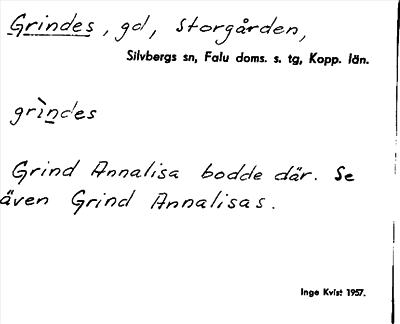 Grindes, gd, Storgården,
Silvbergs sn, Falu doms. s. tg, Kopp. län.
grìndes
Grind Annalisa bodde där. Se
även Grind Annalisas.
Inge Kvist 1957.